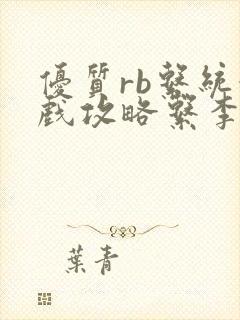 優質rb繫統
戲攻略繫李
葉青